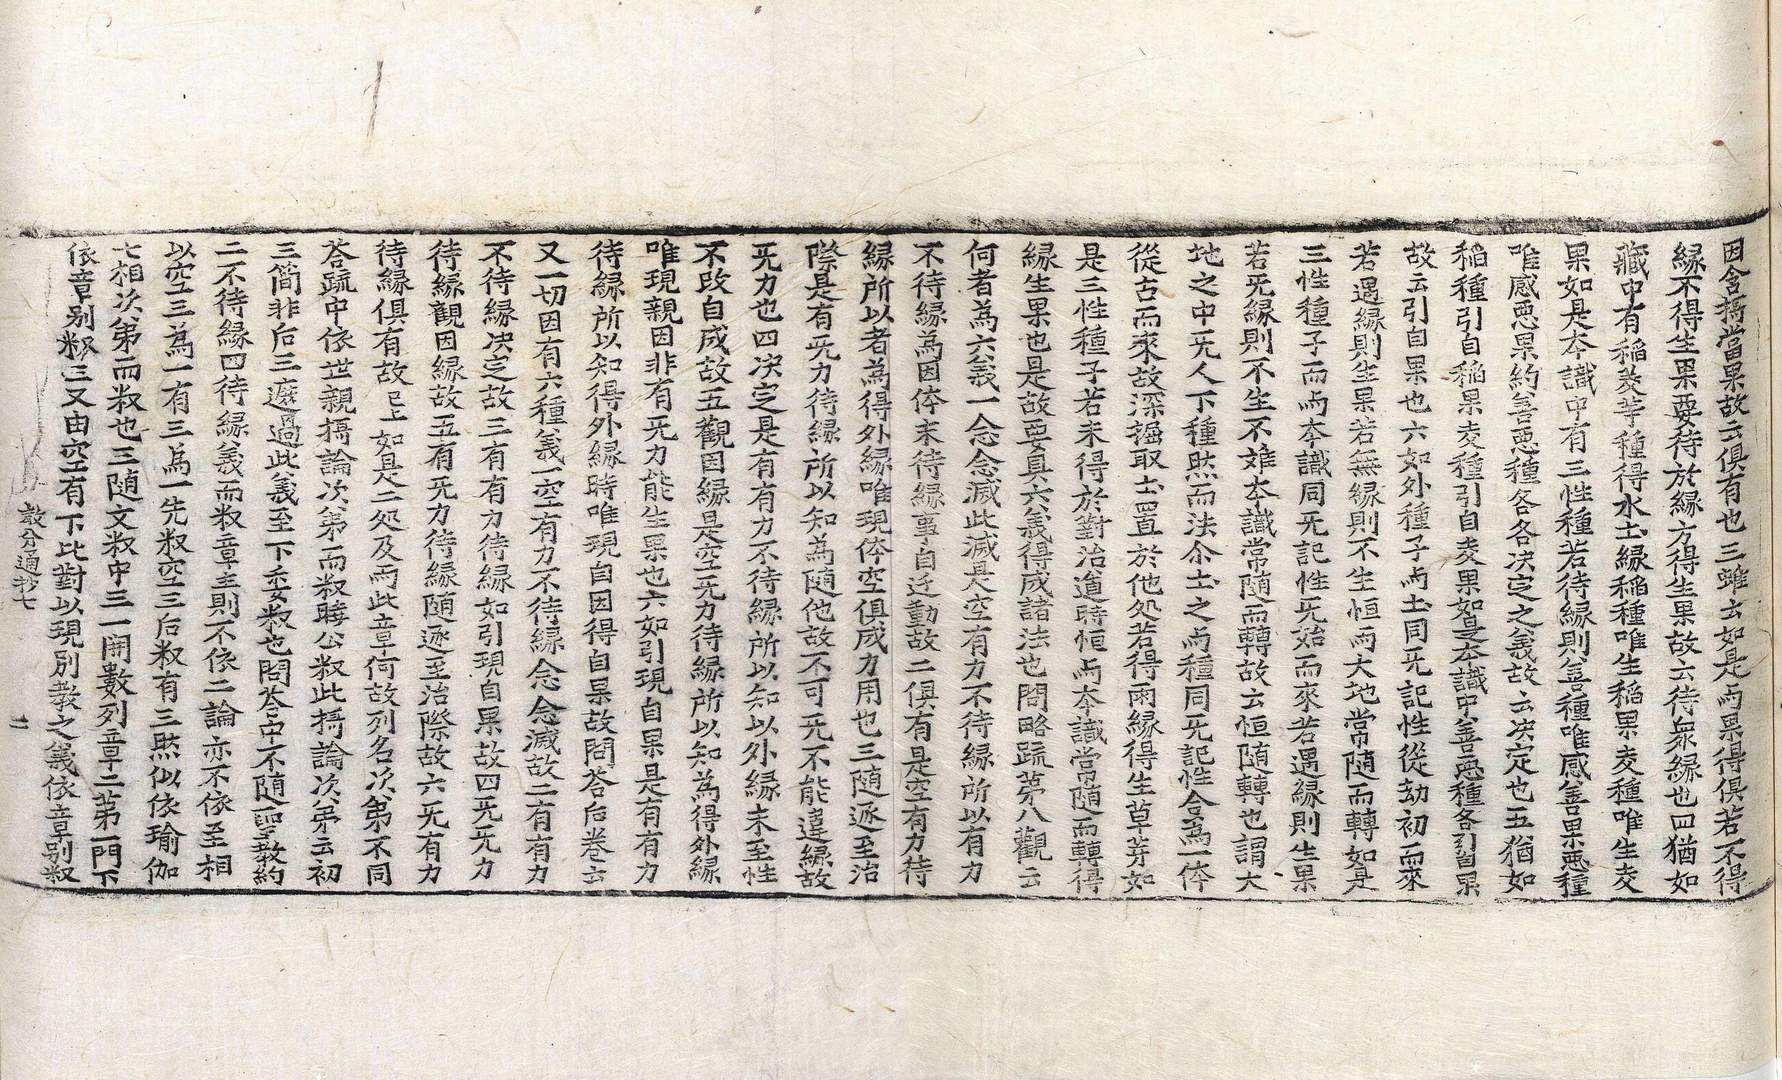 因含摶當果故云俱有也三雖云如是与果得俱若不得
緣不得生果要待於緣方得生果故云待衆緣也四猶如
藏中有稲麦䓁種得水土緣稲種唯生稲果麦種唯生麦
果如是夲識中有三性種若待緣則善種唯感善果悪種
唯感悪果約善悪種各各决㝎之義故云决㝎也五猶如
稲種引自稲果麦種引自麦果如是夲識中善悪種各引自果
故云引自果也六如外種子与土同旡記性從劫初而來
若遇緣則生果若無緣則不生恒与大地常随而轉如是
三性種子而与夲識同旡記性旡始而來若遇緣則生果
若旡緣則不生不難夲識常随而轉故云恒随轉也謂大
地之中旡人下種然而法尒土之与種同旡記性合為一体
從古而來故深掘取土置於他処若得雨緣得生草芽如
是三性種子若未得於對治道時恒与夲識常随而轉得
緣生果也是故要具六義得成諸法也問略䟽第八觀云
何者為六義一念念滅此滅是空有力不待緣所以有力
不待緣為因体未待緣事自迁動故二俱有是空有力待
緣所以者為得外緣唯現体空俱成力用也三随逐至治
際是有旡力待緣所以知為随他故不可旡不能違緣故
旡力也四决㝎是有有力不待緣所以知以外緣未至性
不改自成故五觀因緣是空旡力待緣所以知為得外緣
唯現親因非有旡力能生果也六如引現自果是有有力
待緣所以知得外緣時唯現自因得自果故問荅后卷云
又一切因有六種義一空有力不待緣念念滅故二有有力
不待緣决㝎故三有有力待緣如引現自果故四旡旡力
待緣觀因緣故五有旡力待緣随逐至治際故六旡有力
待緣俱有故已上如是二処及与此章何故列名次第不同
荅䟽中依世親摂論次第而釈晓公釈此摂論次第云初
三簡非后三遮過此義至下委釈也問荅中不随聖教約
二不待緣四待緣義而釈章主則不依二論亦不依至相
以空三為一有三為一先釈空三后釈有三然似依瑜伽
七相次第而釈也三随文釈中三一開數列章二第一門下
依章别釈三又由空有下此對以現別教之義依章别釈
教分通抄七